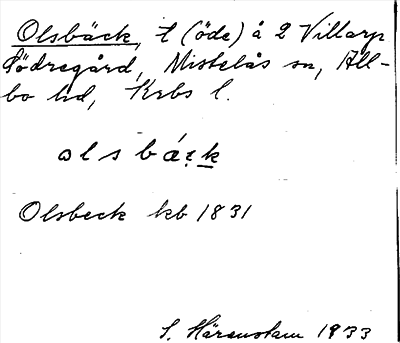 Olsbäck, t (öde) å 2 Villarp
Södregård, Mistelås sn, All-
bo hd, Krbs l.
olsbák
Olsbeck kb 1831
S. Härenstam 1933